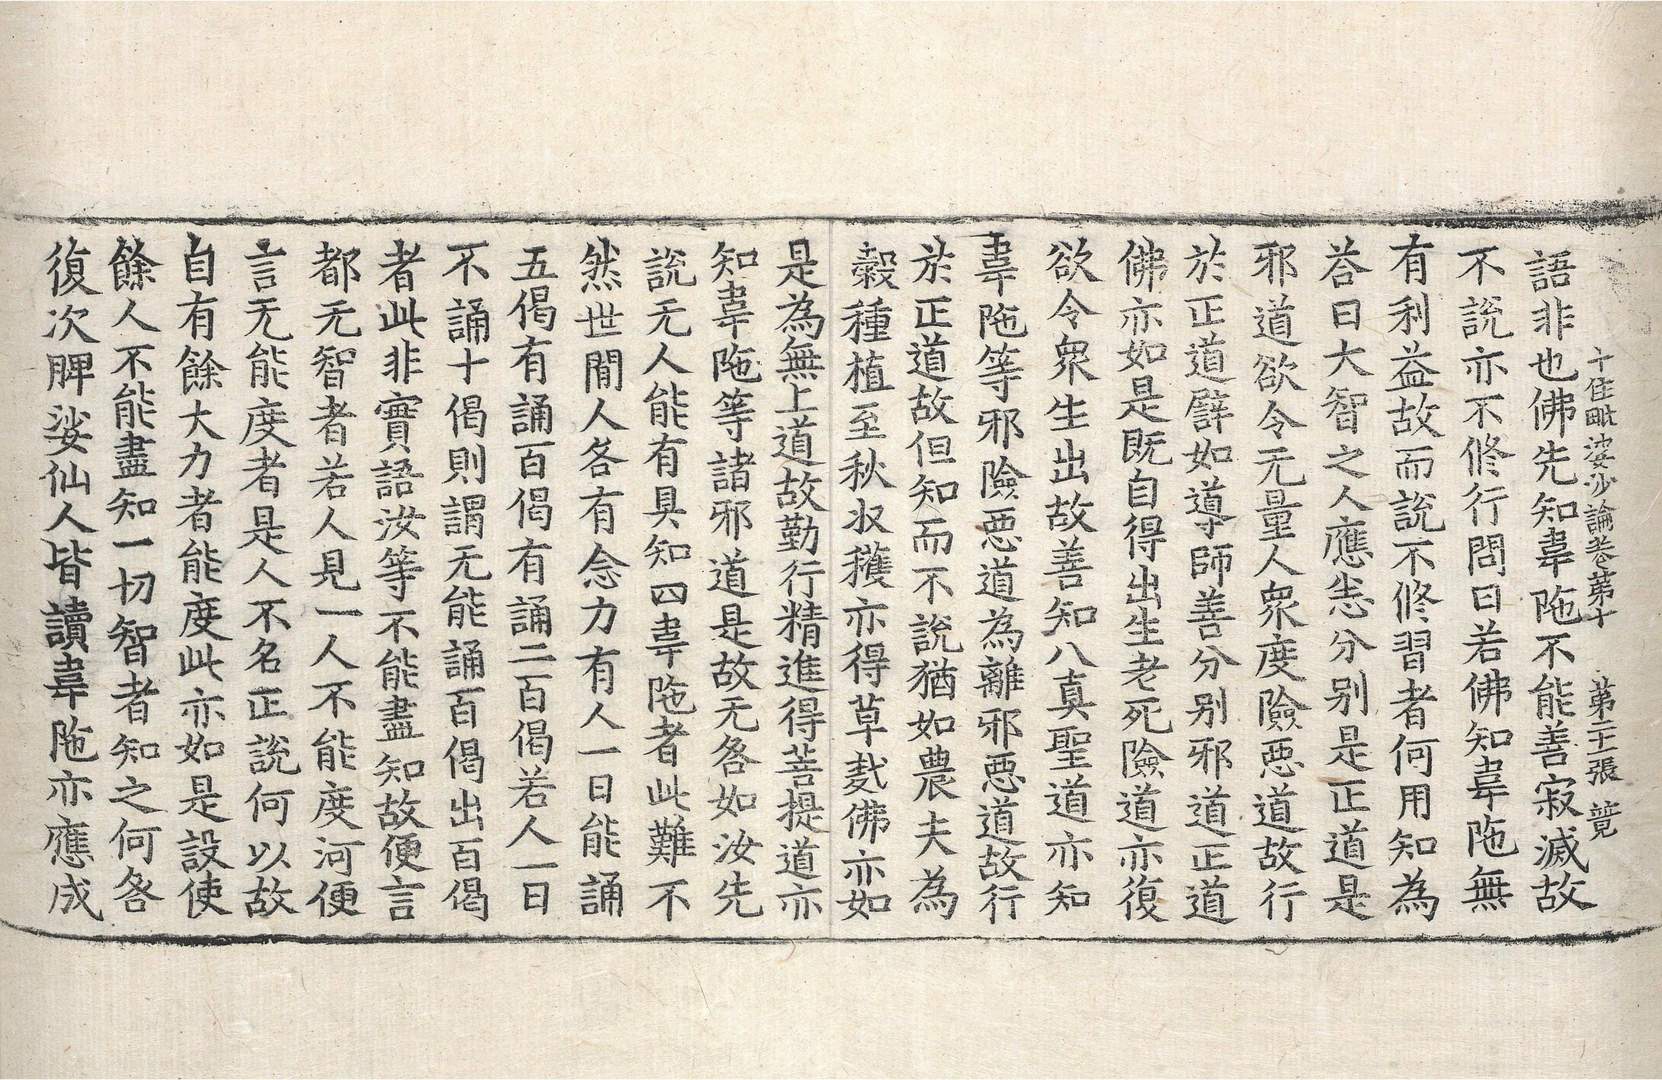 十住毗婆沙論卷第十 第二十一張 競
語非也佛先知韋陁不能善寂滅故
不說亦不修行問曰若佛知韋陁無
有利益故而說不修習者何用知為
荅曰大智之人應悉分别是正道是
邪道欲令无量人衆度險惡道故行
於正道譬如導師善分别邪道正道
佛亦如是既自得出生老死險道亦復
欲令衆生出故善知八真聖道亦知
韋陁等邪險惡道為離邪惡道故行
於正道故但知而不說猶如農夫為
穀種植至秋收穫亦得草𥝖佛亦如
是為無上道故勤行精進得菩提道亦
知韋陁等諸邪道是故无咎如汝先
說无人能有具知四韋陁者此難不
然世間人各有念力有人一日能誦
五偈有誦百偈有誦二百偈若人一日
不誦十偈則謂无能誦百偈出百偈
者此非實語汝等不能盡知故便言
都无智者若人見一人不能度河便
言无能度者是人不名正說何以故
自有餘大力者能度此亦如是設使
餘人不能盡知一切智者知之何咎
復次脾娑仙人皆讀韋陁亦應成